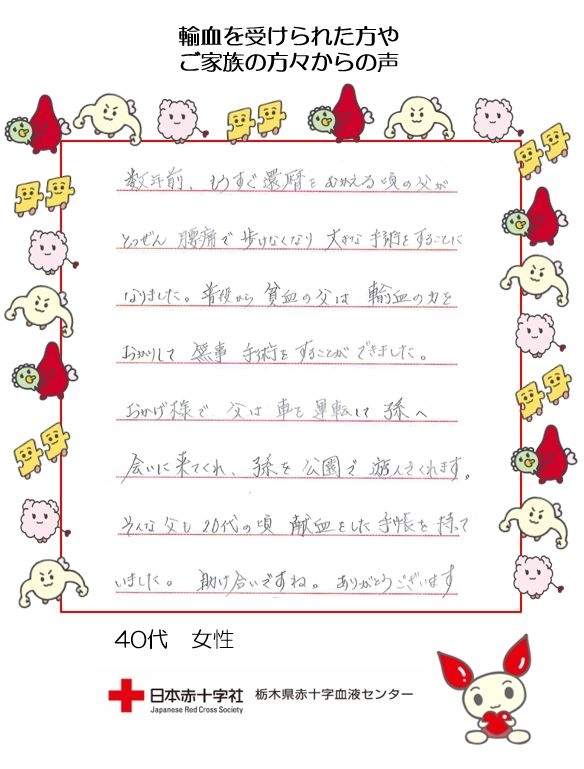 輸血を受けられた方や
ご家族の方々からの声
数年前、もうすぐ還暦をむかえる頃の父が
とつぜん 腰痛で歩けなくなり 大きな 手術をすることに
なりました。普段から 貧血の父は 輸血の力を
おかりして 無事 手術をすることができました。
おかげ様で 父は 車を運転して 孫へ
会いに来てくれ、孫を 公園で 遊んでくれます。
そんな父も 20代の頃 献血をした手帳を持って
いました。 助け合いですね。 ありがとうございます
40代 女性
日本赤十字社 栃木県赤十字血液センター
Japanese Red Cross Society